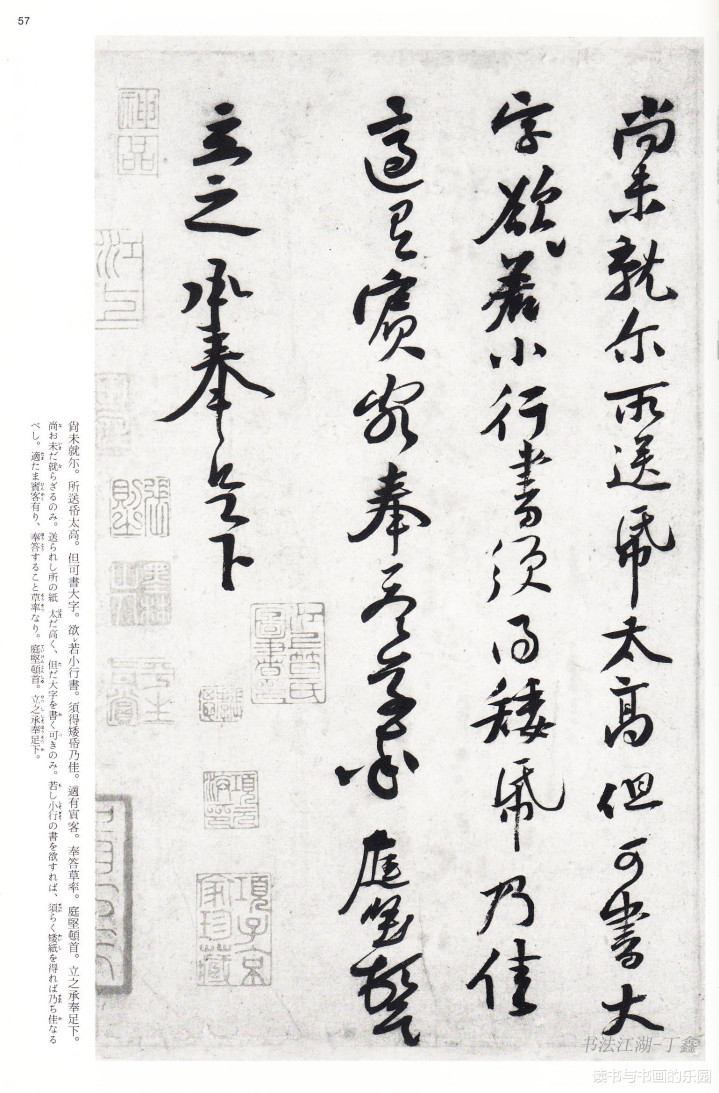 57
尚未就尔所送帋太高但可書大
字欲若小行書須得矮帋乃佳
適有賓客奉答草率庭堅頓首
立之承奉足下
神品
江上
江上笪氏圖書印
項子京家珍藏
尚未就尓。所送帋太高。但可書大字。欲レ若小行書。須得矮帋乃佳。適有賓客。奉答草率。庭堅頓首。立之承奉足下。
尚お未だ就らざるのみ。送られし所の紙 太だ高く、但だ大字を書く可きのみ。若し小行の書を欲すれば、須らく矮紙を得れば乃ち佳なる
べし。適たま賓客有り、奉答すること草率なり。庭堅頓首。立之承奉足下。
书法江湖-丁鑫
读书与书画的乐园